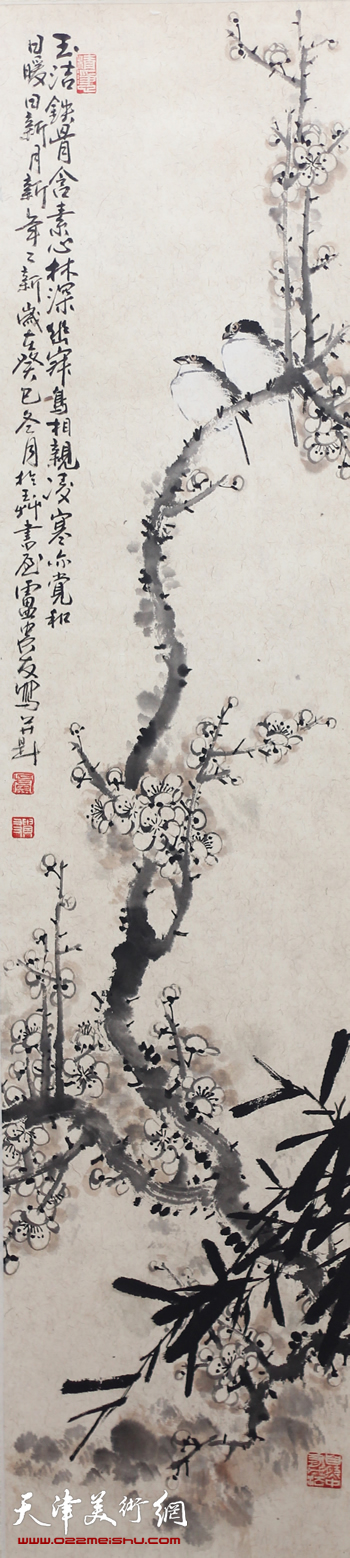 玉洁铁骨含素心林深幽寂鸟相亲凌寒亦觉和
日暖日新月新年〻新岁在癸巳冬月於玉艸书屋卢贵友写并题
天津美術網
www.022meishu.com